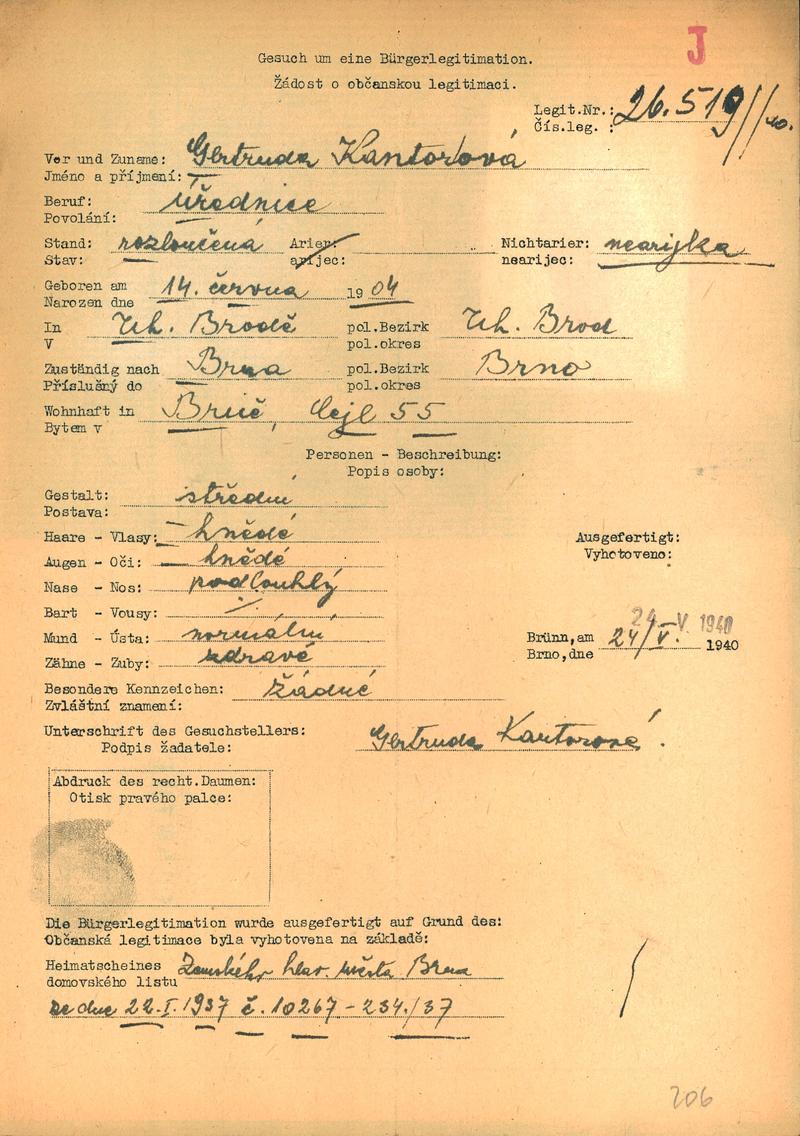 J
Gesuch um eine Bürgerlegitimation.
Žádost o občanskou legitimaci.
Legit.Nr.: 26.519//40.
Čís.leg. :
Vor und Zuname: Gertruda Kantorová
Jméno a příjmení:
Beruf: úřednice
Povolání:
Stand: rozloučená Arier: Nichtarier: nearijka
Stav: arijec: nearijec:
Geboren am 14. června 1904
Narozen dne
In Uh. Brodě pol.Bezirk Uh. Brod
V pol.okres
Zuständig nach Brna pol.Bezirk Brno
Příslušný do pol.okres
Wohnhaft in Brně, Cejl 55
Bytem v
Personen - Beschreibung:
Popis osoby:
Gestalt: střední
Postava:
Haare - Vlasy: hnědé Ausgefertigt:
Augen - Oči: hnědé Vyhotoveno:
Nase - Nos: podlouhlý
Bart - Vousy: ./.
24 V 1940
Mund - Ústa: normální Brünn,am 24/V. 1940
Zähne - Zuby: zdravé Brno,dne
Besondere Kennzeichen: žádné
Zvláštní znamení:
Unterschrift des Gesuchstellers: Gertruda Kantorová.
Podpis žadatele:
Abdruck des recht.Daumen:
Otisk pravého palce:
Die Bürgerlegitimation wurde ausgefertigt auf Grund des:
Občanská legitimace byla vyhotovena na základě:
Heimatscheines Zemského hlav. města Brna
domovského listu
ze dne 22.I.1937 č. 10267-234./37
206